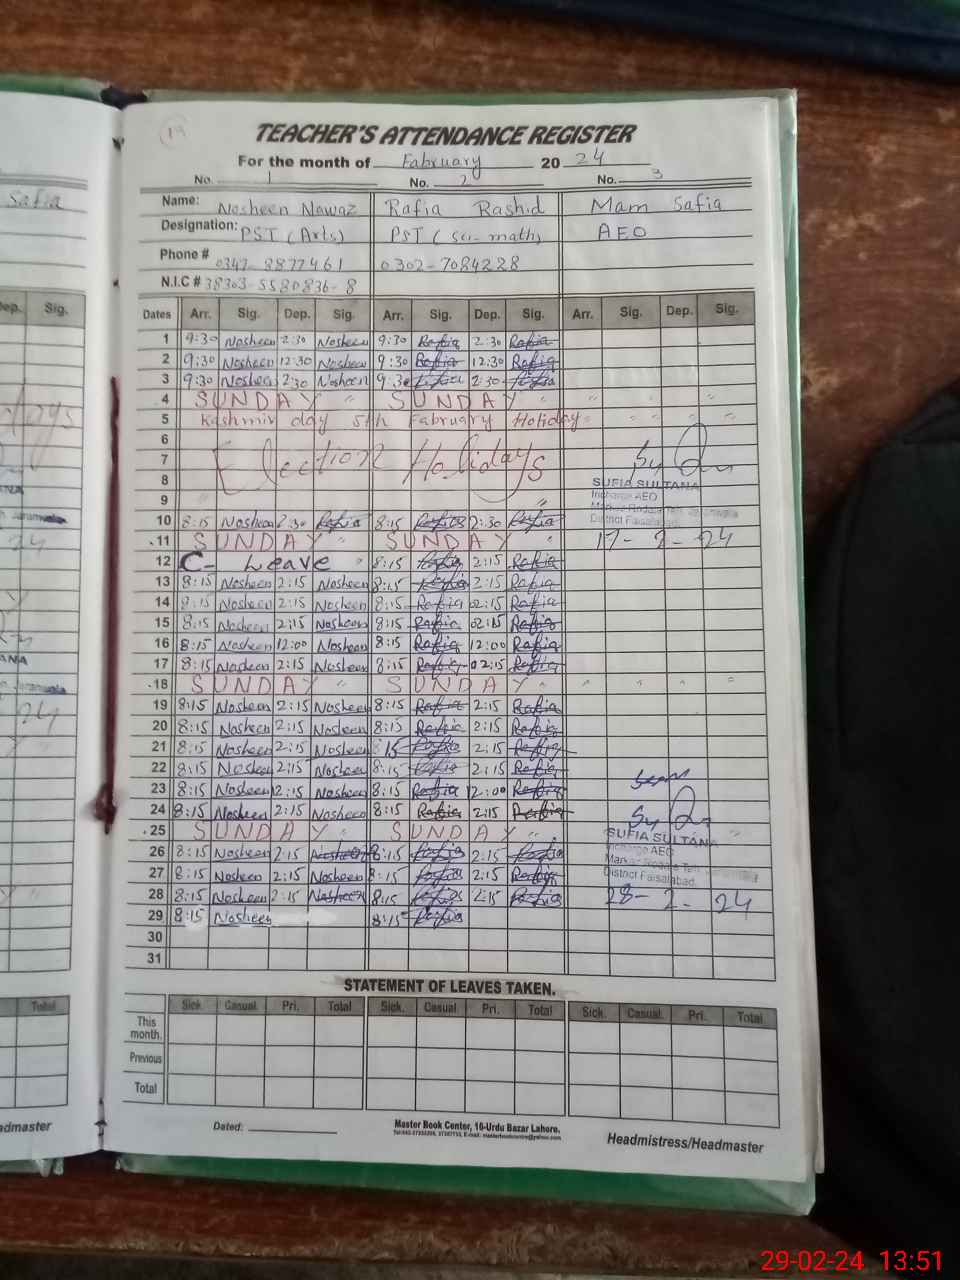 19
TEACHER'S ATTENDANCE REGISTER
For the month of Fabruary 20 24
No. 1 No. 2 No. 3
Safia
Name: Nosheen Nawaz Rafia Rashid Mam Safia
Designation: PST (Arts) PST (sci-math) AEO
Phone # 0347-8877461 0302-7084228
N.I.C # 38303-5580836-8
Dep. Sig.
Dates Arr. Sig. Dep. Sig. Arr. Sig. Dep. Sig. Arr. Sig. Dep. Sig.
1 9:30 Nosheen 2:30 Nosheen 9:30 Rafia 2:30 Rafia
2 9:30 Nosheen 12:30 Nosheen 9:30 Rafia 12:30 Rafia
3 9:30 Nosheen 2:30 Nosheen 9:30 Rafia 2:30 Rafia
4 SUNDAY " SUNDAY " " " "
5 Kashmir day 5th Fabruary Holiday " " " "
6
7 Election Holidays
8 SUFIA SULTANA
Incharge AEO
9 "
District Faisalabad.
10 8:15 Nosheen 2:30 Rafia 8:15 Rafia 2:30 Rafia
11 SUNDAY " SUNDAY " 17-2-24
12 C- Leave " 8:15 Rafia 2:15 Rafia
13 8:15 Nosheen 2:15 Nosheen 8:15 Rafia 2:15 Rafia
14 8:15 Nosheen 2:15 Nosheen 8:15 Rafia 02:15 Rafia
15 8:15 Nosheen 2:15 Nosheen 8:15 Rafia 02:15 Rafia
16 8:15 Nosheen 12:00 Nosheen 8:15 Rafia 12:00 Rafia
17 8:15 Nosheen 2:15 Nosheen 8:15 Rafia 02:15 Rafia
18 SUNDAY " SUNDAY " " " " "
19 8:15 Nosheen 2:15 Nosheen 8:15 Rafia 2:15 Rafia
20 8:15 Nosheen 2:15 Nosheen 8:15 Rafia 2:15 Rafia
21 8:15 Nosheen 2:15 Nosheen 8:15 Rafia 2:15 Rafia
22 8:15 Nosheen 2:15 Nosheen 8:15 Rafia 2:15 Rafia
23 8:15 Nosheen 12:15 Nosheen 8:15 Rafia 12:00 Rafia
24 8:15 Nosheen 2:15 Nosheen 8:15 Rafia 2:15 Rafia
25 SUNDAY " SUNDAY " SUFIA SULTANA "
Incharge AEO
26 8:15 Nosheen 2:15 Nosheen 8:15 Rafia 2:15 Rafia
27 8:15 Nosheen 2:15 Nosheen 8:15 Rafia 2:15 Rafia District Faisalabad.
28 8:15 Nosheen 2:15 Nosheen 8:15 Rafia 2:15 Rafia 28-2-24
29 8:15 Nosheen 8:15 Rafia
30
31
STATEMENT OF LEAVES TAKEN.
Total
Sick. Casual. Pri. Total Sick. Casual. Pri. Total Sick. Casual. Pri. Total
This month.
Previous
Total
Dated:
Master Book Center, 16-Urdu Bazar Lahore.
Headmistress/Headmaster
29-02-24 13:51